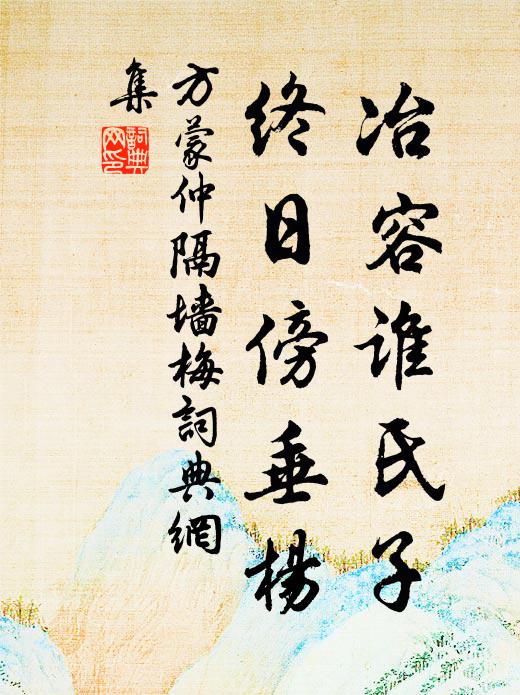 冶容谁氏子
终日傍垂楊
方蒙仲隔墙梅詞典網
集
詞典網印